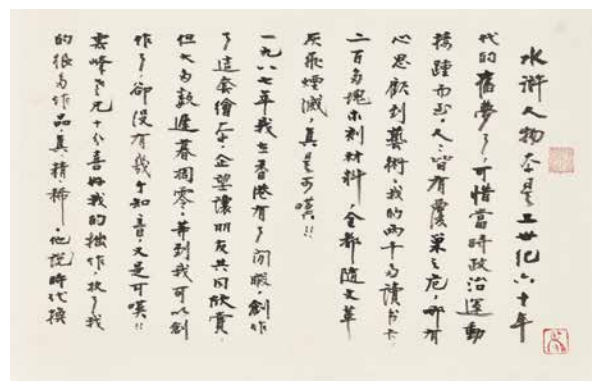 水滸人物本是上世纪六十年
我的舊夢了,可惜當時政治運動
接踵而至,人人皆有覆巢之危,哪有
心思顧到藝術。我的兩千多讀书卡、
二百多塊木刻材料,全都隨文革
灰飛煙滅,真是可嘆!!
一九八七年我在香港有了閒暇,創作
了這套繪本,企望讓朋友共同欣賞。
但大多数遲暮凋零,等到我可以創
作了,卻沒有幾个知音,又是可嘆!!
雲峰老兄十分喜好我的拙作,收了我
的很多作品,真、精、稀。他說時代撰